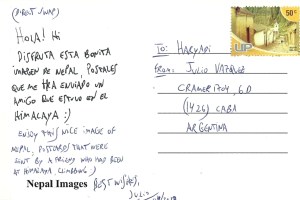 (DIRECT SWAP)
HOLA! Hi
DISFRUTA ESTA BONITA
IMAGEN DE NEPAL, POSTALES
QUE ME HA ENVIADO UN
AMIGO QUE ESTUVO EN EL
HIMALAYA :)
ENJOY THIS NICE IMAGE OF
NEPAL, POSTCARDS THAT WERE
SENT BY A FRIEND WHO HAD BEEN
AT HIMALAYA CLIMBING :)
Nepal Images
BEST WISHES,
JULIO
TO: HARYADI
FROM: JULIO VAZQUEZ
CRAMER 1704, 6D
(1426) CABA
ARGENTINA
50c
UP